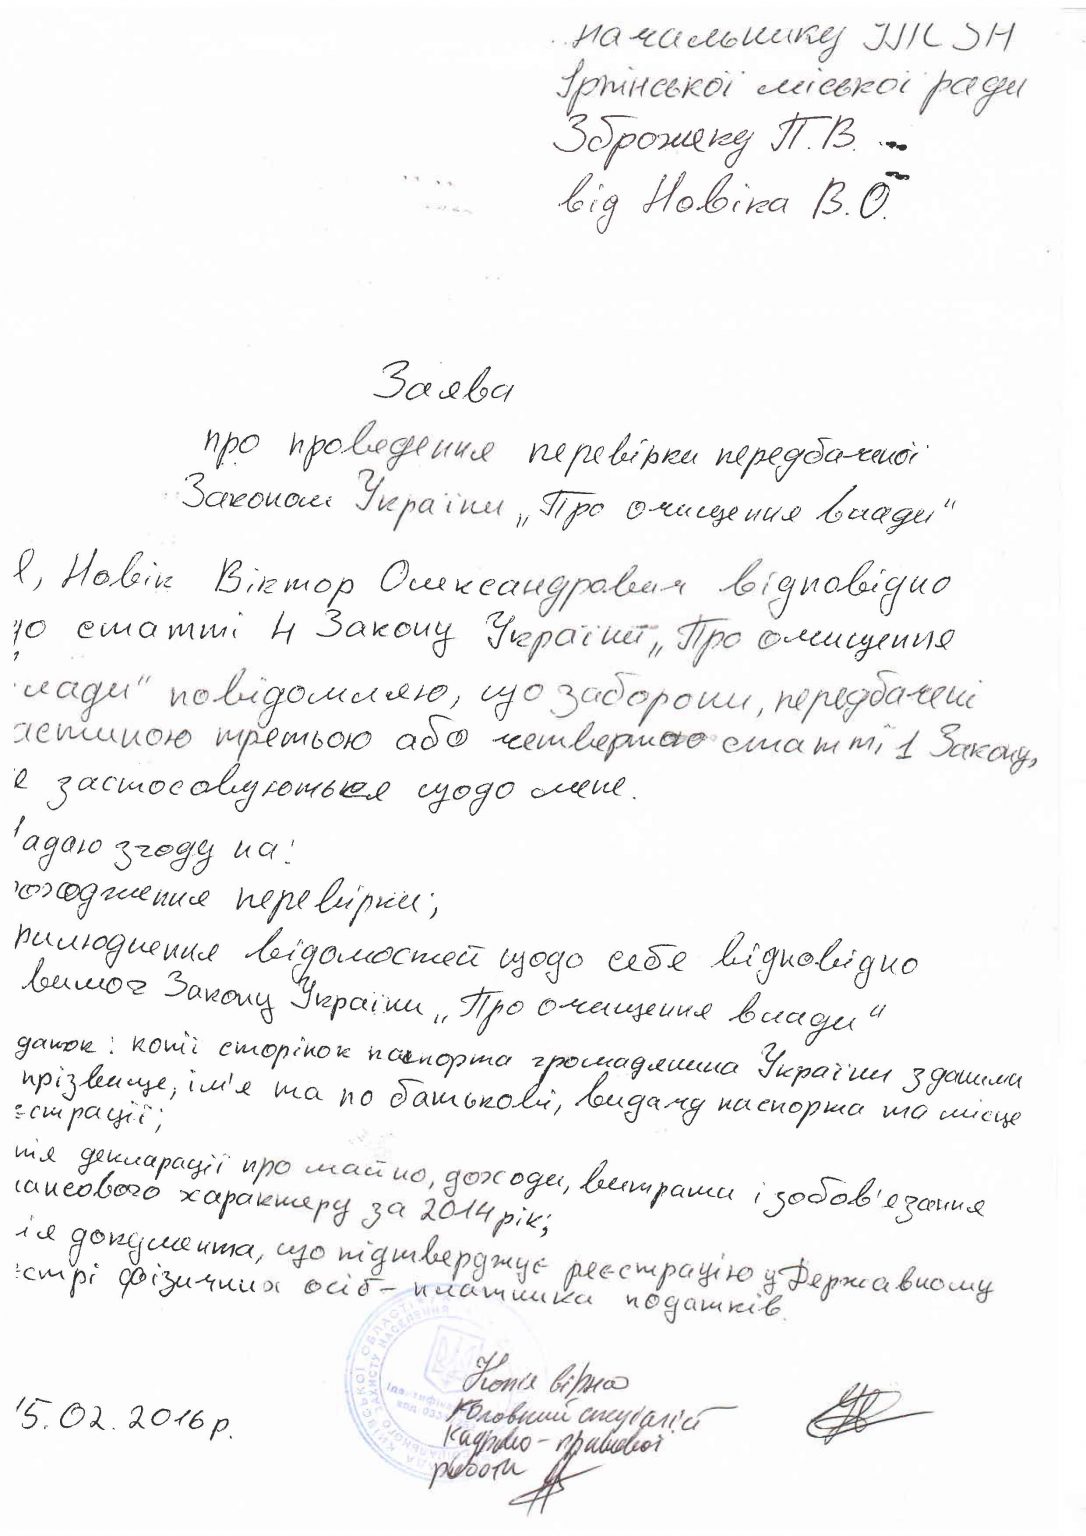 начальнику УПСЗН
Ірпінської міської ради
Зброжеку П.В.
від Новіка В.О.
Заява
про проведення перевірки передбаченої
Законом України „Про очищення влади"
Я, Новік Віктор Олександрович відповідно
до статті 4 Закону України „Про очищення
лади" повідомляю, що заборони, передбачені
астиною третьою або четвертою статті 1 Закону,
е застосовуються щодо мене.
адаю згоду на:
роходження перевірки;
рилюднення відомостей щодо себе відповідно
вимог Закону України „Про очищення влади"
даток: копії сторінок паспорта громадянина України з даними
прізвище, ім'я та по батькові, видачу паспорта та місце
єстрації;
пія декларації про майно, доходи, витрати і зобов'язання
нансового характеру за 2014 рік;
ія документа, що підтверджує реєстрацію у Державному
єстрі фізичних осіб - платника податків.
15.02.2016р.
Копія вірна
Головний спеціаліст
кадрово - правової
роботи